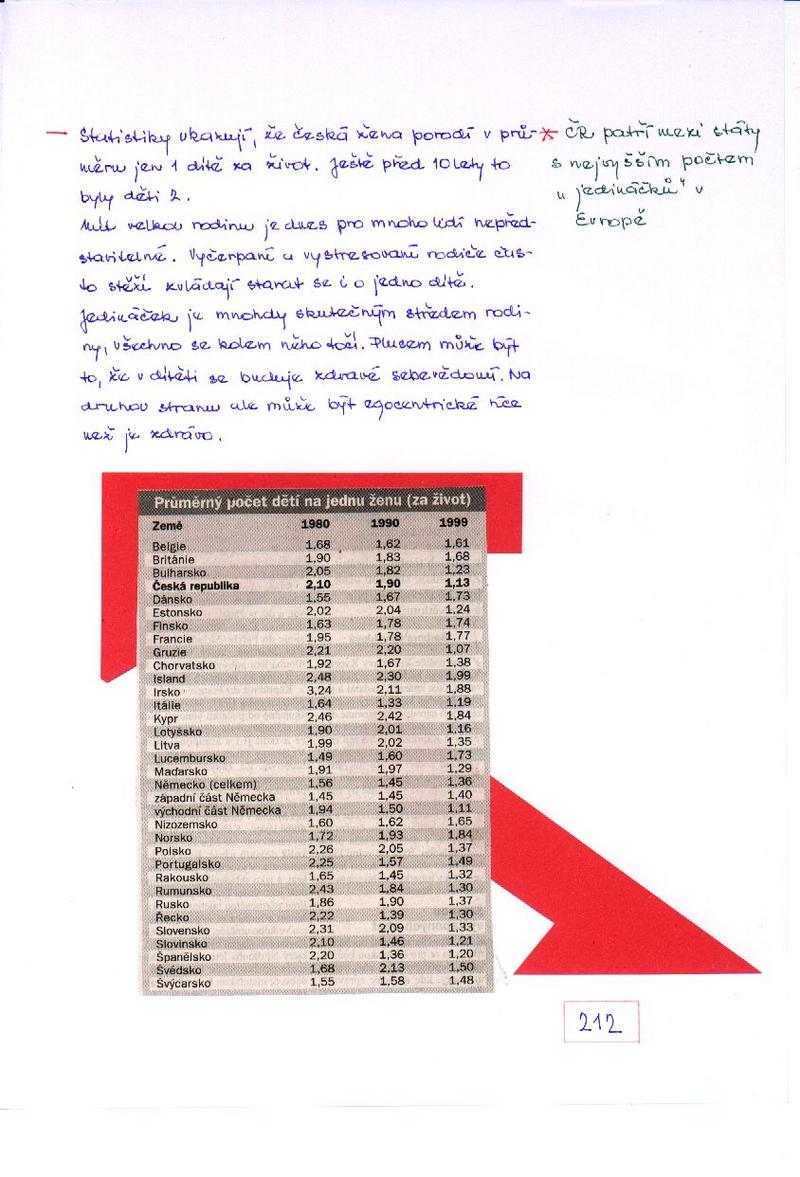 — Statistiky ukazují, že česká žena porodí v prů-
měru jen 1 dítě za život. Ještě před 10 lety to
byly děti 2.
Mít velkou rodinu je dnes pro mnoho lidí nepřed-
stavitelné. Vyčerpaní a vystresovaní rodiče čas-
to stěží zvládají starat se i o jedno dítě.
Jedináček je mnohdy skutečným středem rodi-
ny, všechno se kolem něho točí. Plusem může být
to, že v dítěti se buduje zdravé sebevědomí. Na
druhou stranu ale může být egocentrické více
než je zdrávo.
* ČR patří mezi státy
s nejvyšším počtem
„jedináčků“ v
Evropě
Průměrný počet dětí na jednu ženu (za život)
Země 1980 1990 1999
Belgie 1,68 1,62 1,61
Británie 1,90 1,83 1,68
Bulharsko 2,05 1,82 1,23
Česká republika 2,10 1,90 1,13
Dánsko 1,55 1,67 1,73
Estonsko 2,02 2,04 1,24
Finsko 1,63 1,78 1,74
Francie 1,95 1,78 1,77
Gruzie 2,21 2,20 1,07
Chorvatsko 1,92 1,67 1,38
Island 2,48 2,30 1,99
Irsko 3,24 2,11 1,88
Itálie 1,64 1,33 1,19
Kypr 2,46 2,42 1,84
Lotyšsko 1,90 2,01 1,16
Litva 1,99 2,02 1,35
Lucembursko 1,49 1,60 1,73
Maďarsko 1,91 1,97 1,29
Německo (celkem) 1,56 1,45 1,36
západní část Německa 1,45 1,45 1,40
východní část Německa 1,94 1,50 1,11
Nizozemsko 1,60 1,62 1,65
Norsko 1,72 1,93 1,84
Polsko 2,26 2,05 1,37
Portugalsko 2,25 1,57 1,49
Rakousko 1,65 1,45 1,32
Rumunsko 2,43 1,84 1,30
Rusko 1,86 1,90 1,37
Řecko 2,22 1,39 1,30
Slovensko 2,31 2,09 1,33
Slovinsko 2,10 1,46 1,21
Španělsko 2,20 1,36 1,20
Švédsko 1,68 2,13 1,50
Švýcarsko 1,55 1,58 1,48
212